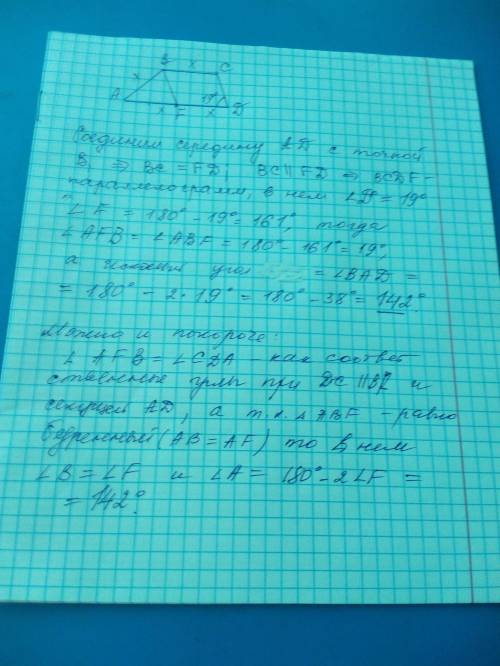 B x C
x
A x F x 19° D
Соединим середину АД с точкой
В, ⇒ BC = FD; BC ∥ FD ⇒ BCDF -
параллелограмм, в нем ∠D = 19°
∠F = 180° - 19° = 161°, тогда
∠AFB = ∠ABF = 180° - 161° = 19°,
а искомый угол = ∠BAD =
= 180° - 2·19° = 180° - 38° = 142°.
Можно и покороче:
∠AFB = ∠CDA - как соответ
ственные углы при DC ∥ BF и
секущей AD, а т.к. △ABF - равно
бедренный (AB = AF) то в нем
∠B = ∠F и ∠A = 180° - 2∠F =
= 142°.